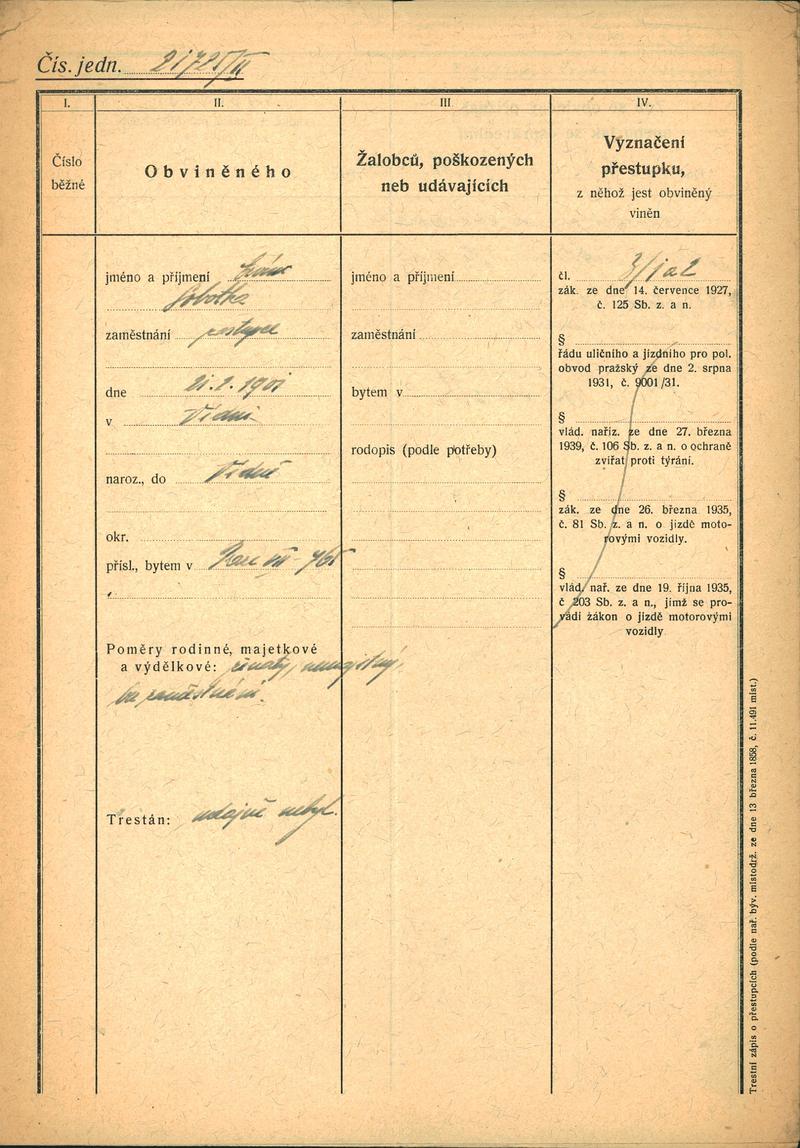 Čís. jedn. 21725/II
I.
II.
III.
IV.
Číslo
běžné
Obviněného
Žalobců, poškozených
neb udávajících
Vyznačení
přestupku,
z něhož jest obviněný
viněn
jméno a příjmení
Sobotka
zaměstnání
dne 21.2.1901
v Vídni
naroz., do Vídně
okr.
přísl., bytem v
Poměry rodinné, majetkové
a výdělkové: ženatý, nemajetný,
bez zaměstnání.
Trestán: udajně nebyl.
jméno a příjmení
zaměstnání
bytem v
rodopis (podle potřeby)
čl. 3/1 a 2
zák. ze dne 14. července 1927,
č. 125 Sb. z. a n.
§
řádu uličního a jízdního pro pol.
obvod pražský ze dne 2. srpna
1931, č. 9001/31.
§
vlád. nařiz. ze dne 27. března
1939, č. 106 Sb. z. a n. o ochraně
zvířat proti týrání.
§
zák. ze dne 26. března 1935,
č. 81 Sb. z. a n. o jízdě moto-
rovými vozidly.
§
vlád. nař. ze dne 19. října 1935,
č 203 Sb. z. a n., jímž se pro-
vádí žákon o jízdě motorovými
vozidly
Trestní zápis o přestupcích (podle nař. býv. místodrž. ze dne 13 března 1858, č. 11.491 míst.)